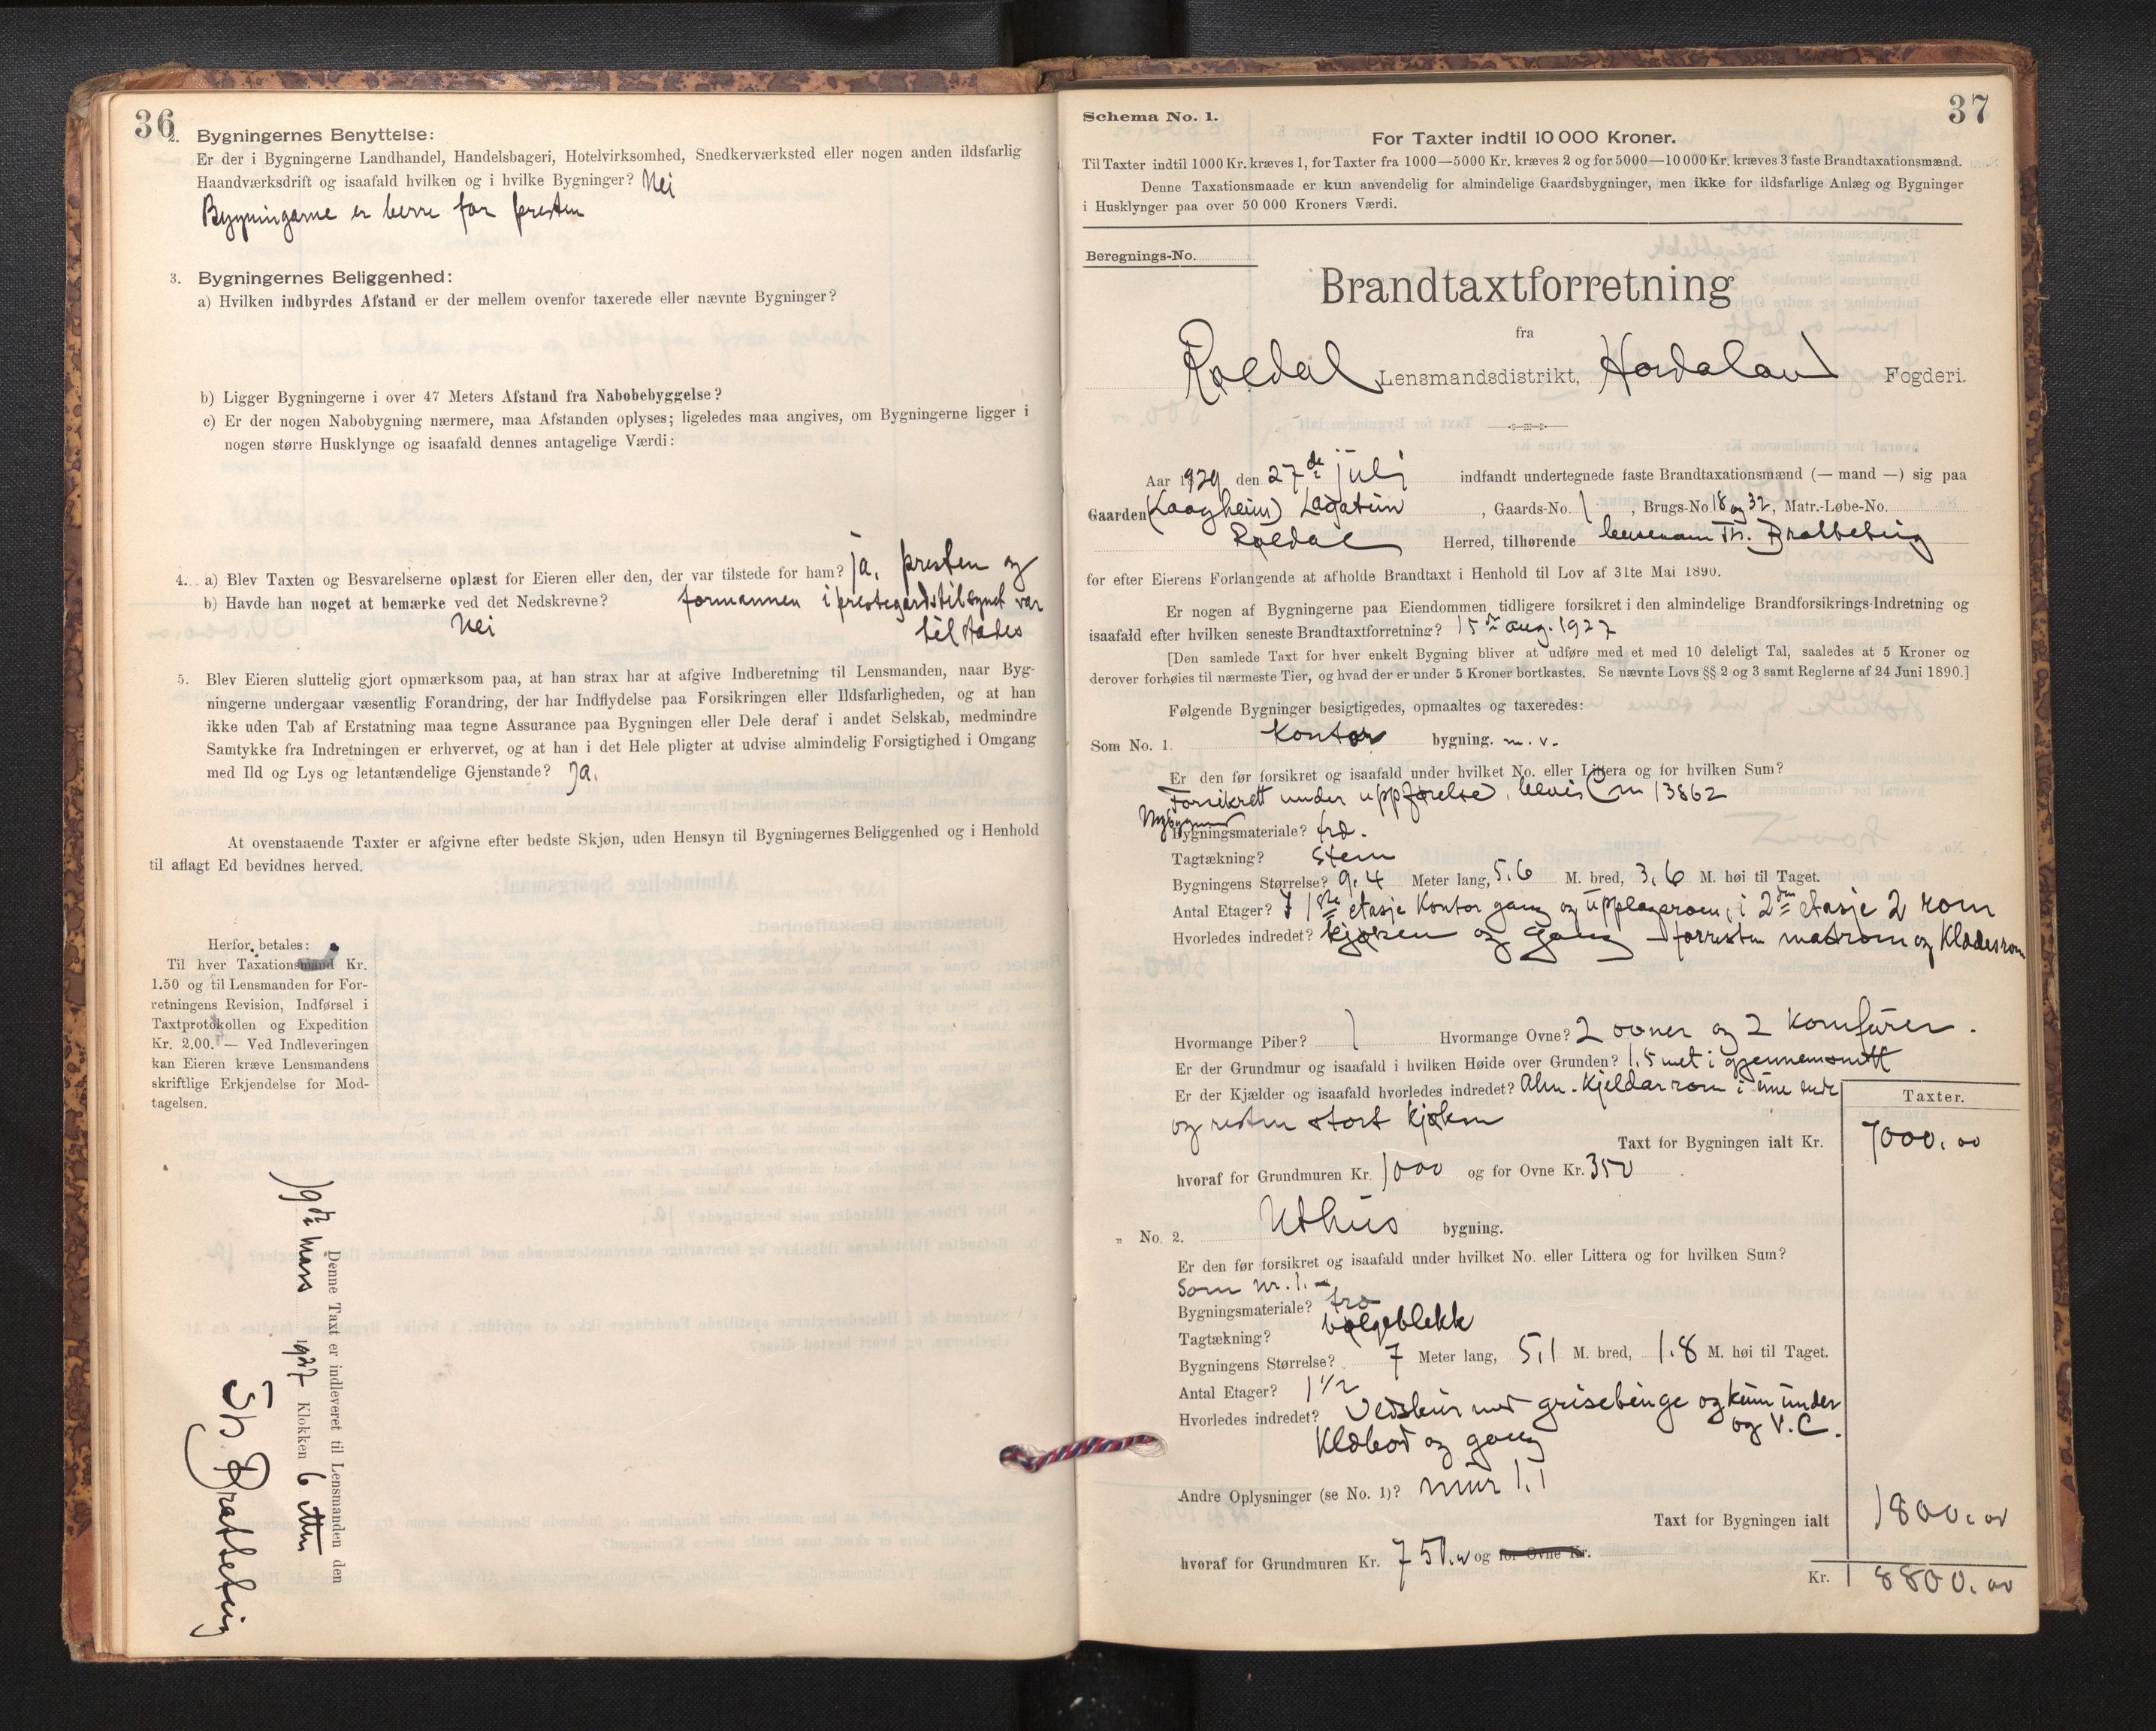 36
2. Bygningernes Benyttelse:
Er der i Bygningerne Landhandel, Handelsbageri, Hotelvirksomhed, Snedkerværksted eller nogen anden ildsfarlig
Haandværksdrift og isaafald hvilken og i hvilke Bygninger? Nei
Bygningarne er berre for presten
3. Bygningernes Beliggenhed:
a) Hvilken indbyrdes Afstand er der mellem ovenfor taxerede eller nævnte Bygninger?
b) Ligger Bygningerne i over 47 Meters Afstand fra Nabobebyggelse?
c) Er der nogen Nabobygning nærmere, maa Afstanden oplyses; ligeledes maa angives, om Bygningerne ligger i
nogen større Husklynge og isaafald dennes antagelige Værdi:
4. a) Blev Taxten og Besvarelserne oplæst for Eieren eller den, der var tilstede for ham? ja, presten og
b) Havde han noget at bemærke ved det Nedskrevne? formannen i prestegardstilsynet var
Nei til stades
5. Blev Eieren sluttelig gjort opmærksom paa, at han strax har at afgive Indberetning til Lensmanden, naar Byg-
ningerne undergaar væsentlig Forandring, der har Indflydelse paa Forsikringen eller Ildsfarligheden, og at han
ikke uden Tab af Erstatning maa tegne Assurance paa Bygningen eller Dele deraf i andet Selskab, medmindre
Samtykke fra Indretningen er erhvervet, og at han i det Hele pligter at udvise almindelig Forsigtighed i Omgang
med Ild og Lys og letantændelige Gjenstande? Ja.
At ovenstaaende Taxter er afgivne efter bedste Skjøn, uden Hensyn til Bygningernes Beliggenhed og i Henhold
til aflagt Ed bevidnes herved.
Herfor betales:
Til hver Taxationsmand Kr.
1.50 og til Lensmanden for For-
retningens Revision, Indførsel i
Taxtprotokollen og Expedition
Kr. 2.00. — Ved Indleveringen
kan Eieren kræve Lensmandens
skriftlige Erkjendelse for Mod-
tagelsen.
Denne Taxt er indleveret til Lensmanden den
19de mars 1927 Klokken 6 ettm
Th. Bratteteig
37
Schema No. 1.
For Taxter indtil 10 000 Kroner.
Til Taxter indtil 1000 Kr. kræves 1, for Taxter fra 1000—5000 Kr. kræves 2 og for 5000—10 000 Kr. kræves 3 faste Brandtaxationsmænd.
Denne Taxationsmaade er kun anvendelig for almindelige Gaardsbygninger, men ikke for ildsfarlige Anlæg og Bygninger
i Husklynger paa over 50 000 Kroners Værdi.
Beregnings-No.
Brandtaxtforretning
fra
Røldal Lensmandsdistrikt, Hordaland Fogderi.
Aar 1929 den 27de juli indfandt undertegnede faste Brandtaxationsmænd (— mand —) sig paa
Gaarden (Laagheim) Lagatun, Gaards-No. 1, Brugs-No. 18 og 32, Matr.-Løbe-No.
Røldal Herred, tilhørende lensmann Th. Bratteteig
for efter Eierens Forlangende at afholde Brandtaxt i Henhold til Lov af 31te Mai 1890.
Er nogen af Bygningerne paa Eiendommen tidligere forsikret i den almindelige Brandforsikrings-Indretning og
isaafald efter hvilken seneste Brandtaxtforretning? 15de aug. 1927
[Den samlede Taxt for hver enkelt Bygning bliver at udføre med et med 10 deleligt Tal, saaledes at 5 Kroner og
derover forhøies til nærmeste Tier, og hvad der er under 5 Kroner bortkastes. Se nævnte Lovs §§ 2 og 3 samt Reglerne af 24 Juni 1890.]
Følgende Bygninger besigtigedes, opmaaltes og taxeredes:
Som No. 1. Kontor bygning. m. v.
Er den før forsikret og isaafald under hvilket No. eller Littera og for hvilken Sum?
Forsikrett under uppførelse, bevis nr 13862
Nybygning
Bygningsmateriale? træ.
Tagtækning? Stein
Bygningens Størrelse? 9,4 Meter lang, 5,6 M. bred, 3,6 M. høi til Taget.
Antal Etager? I 1ste etasje Kontor gang og upplagsrom, i 2den etasje 2 rom
Hvorledes indretet? kjøken og gang forresten matrom og Klædesrom
Hvormange Piber? 1 Hvormange Ovne? 2 ovner og 2 komfurer.
Er der Grundmur og isaafald i hvilken Høide over Grunden? 1,5 met i gjennemsnitt
Er der Kjælder og isaafald hvorledes indredet? Alm. Kjeldarrom i eine ende
og resten stort kjøken
Taxter.
Taxt for Bygningen ialt Kr. 7000.00
hvoraf for Grundmuren Kr. 1000 og for Ovne Kr. 350
„ No. 2. Uthus bygning.
Er den før forsikret og isaafald under hvilket No. eller Littera og for hvilken Sum?
Som nr. 1. –
Bygningsmateriale? træ
Tagtækning? bølgeblekk
Bygningens Størrelse? 7 Meter lang, 5,1 M. bred, 1.8 M. høi til Taget.
Antal Etager? 1 1/2
Hvorledes indredet? Vedskur med grisebinge og kum under
Klæbod og gang og V.C.
Andre Oplysninger (se No. 1)? mur 1.1
Taxt for Bygningen ialt 1800.00
hvoraf for Grundmuren Kr. 750.00 og for Ovne Kr.
Kr. 8800.00